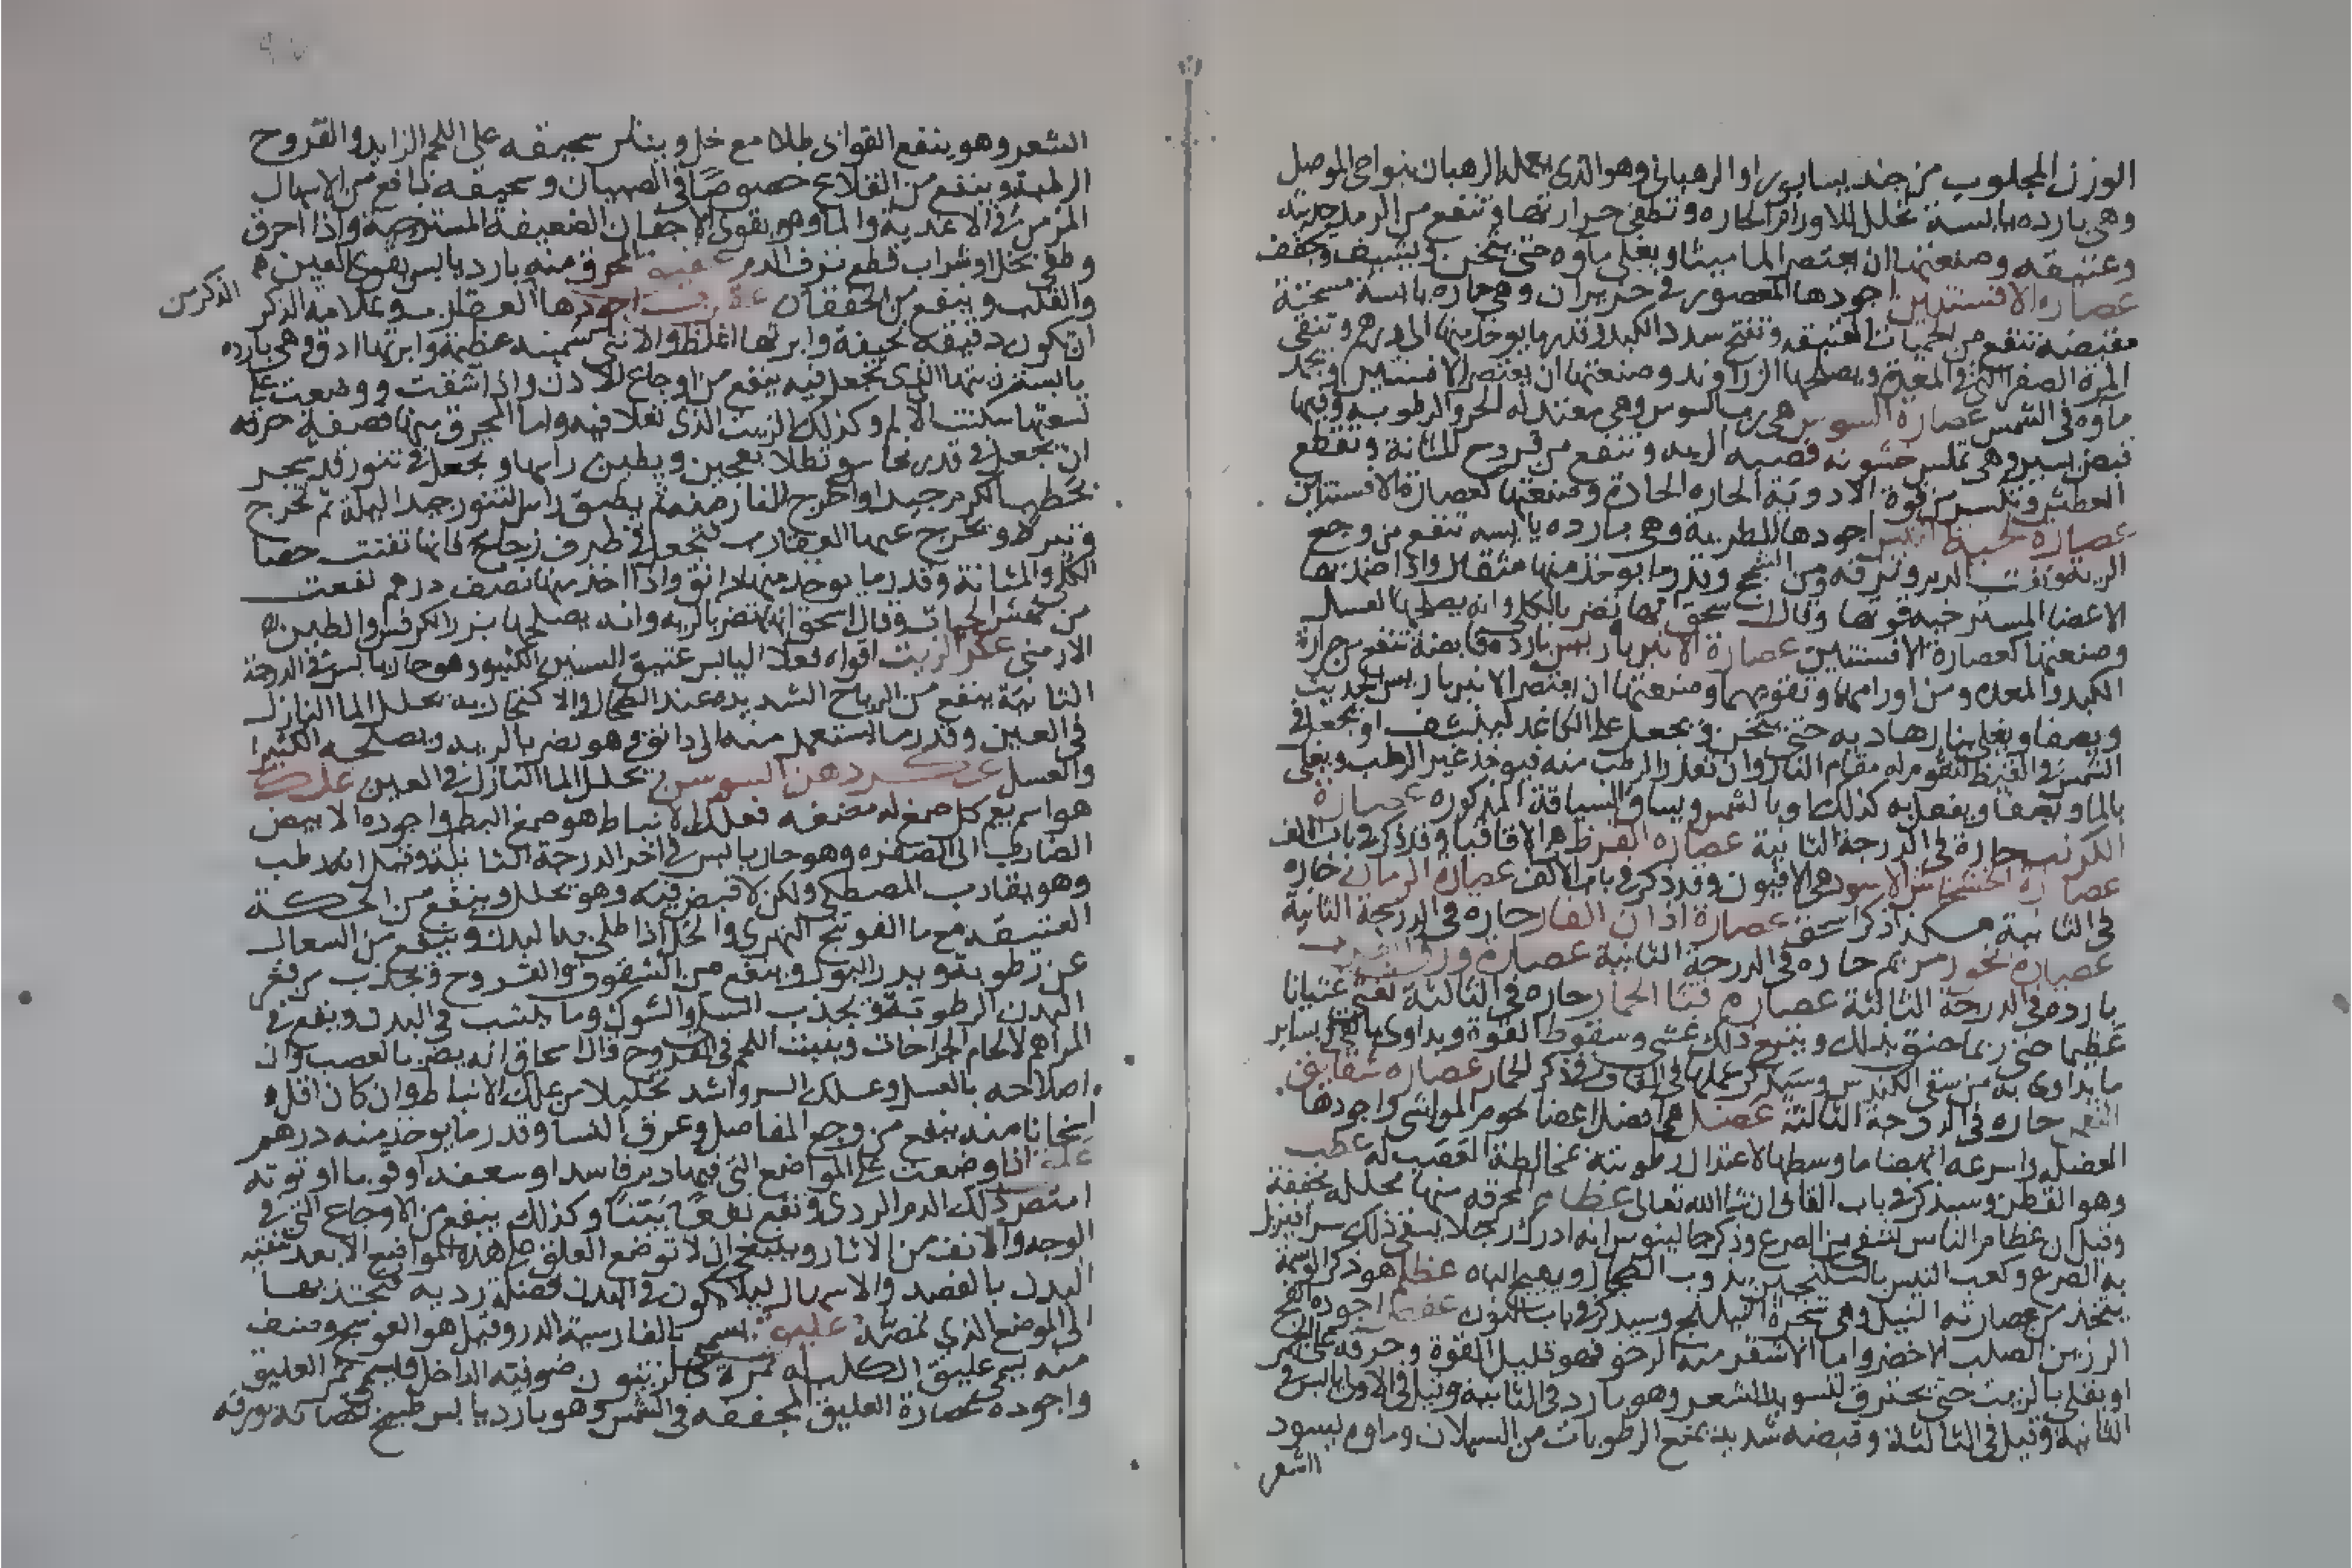 الوزن المجلوب من جند يسابور او الرهباني وهو الذي يعمله الرهبان بنواحي الموصل
وهي بارده يابسة تحلل الاورام الحاره وتطفي حرارتها وتنفع من الرمد حديثه
وعتيقه وصنعتها ان يعتصر الماميثا ويغلي ماوه حتى يثخن ويشيف ويجفف
عصارة الافسنتين اجودها المعصور في حزيران وهي حاره يابسة مسخنة
مقبضة تنفع من الحميات العتيقه وتفتح سدد الكبد وقدر ما يوخذ منها الى درهم وتنقي
المرة الصفرا التي في المعدة ويصلحها الزراوند وصنعتها ان يعتصر الافسنتين ويجمد
ماوه في الشمس عصارة السوس هي رب السوس وهي معتدله الحر والرطوبه وفيها
قبض يسير وهي تملس خشونه قصبه الريه وتنفع من قروح المثانة وتقطع
العطش وتكسر من قوة الادوية الحاره الحادة وصنعتها كعصارة الافسنتين
عصارة لحية التيس اجودها الطرية وهي بارده يابسه تنفع من وجع
الريه ونفث الدم ونزفه ومن السحج وقدر ما يوخذ منها مثقال واذا ضمد بها
الاعضا المسترخيه قوتها وقال اسحق انها تضر بالكلي وانه يصلحها العسل
وصنعتها كعصارة الافسنتين عصارة الانبرباريس بارده قابضة تنفع من حرارة
الكبد والمعده ومن اورامهما وتقويهما وصنعتها ان يعتصر الانبرباريس الحديث
ويصفا ويغلي بنار هاديه حتى يثخن ويجعل على الكاغد لينشف او يجعل في
الشمس في القيظ لتقوم له مقام النار وان تعذر الرطب منه فيوخذ غير الرطب ويغلي
بالما ويصفا ويفعل به كذلك او بالشمس ويساق السياقة المذكوره عصارة
الكرنب حارة في الدرجة الثانية عصاره القرظ هي الاقاقيا وقد ذكر في باب الالف
عصارة الخشخاش الاسود هي الافيون وقد ذكر في باب الالف عصارة الرمان حاره
في الثانية هكذا ذكر اسحق عصارة اذان الفار حاره في الدرجة الثانية
عصاره بخور مريم حاره في الدرجة الثانية عصارة ورق
بارده في الدرجة الثالثة عصاره قثا الحمار حاره في الثالثة تفتح غثيانا
عظيما حتى ربما خنق بذلك ويتبع ذلك غشي وسقوط القوة ويداوى بالقي وساير
ما يداوى به من سقي الكندس وسيذكر عملها في القاف في ذكر الحمار عصاره شقايق
النعمن حاره في الدرجة الثالثة عضل هي افضل اعضا لحوم المواشي واجودها
العضل واسرعه انهضاما وسطها لاعتدال رطوبته بمخالطة العصب له عطب
وهو القطن وسيذكر في باب القاف ان شا الله تعالى عظام المحرقه منها محلله مجففة
وقيل ان عظام الناس تشفي من الصرع وذكر جالينوس انه ادرك رجلا يسقي ذلك سرا فيزيل
به الصرع وكعب التيس بالسكنجبين يذوب الطحال ويهيج الباه عظلم هو ذكر الوسمة
يتخذ من عصارته النيل وهي شجرة النيلنج وسيذكر في باب النون عفص اجوده الفج
الرزين الصلب الاخضر واما الاشقر منه الرخو فهو قليل القوة وحرقه على الجمر
او يغلي بالزيت حتى يحترق لتسويد الشعر وهو بارد في الثانية وقيل في الاولى يابس في
الثانية وقيل في الثالثة وقبضه شديد يمنع الرطوبات من السيلان وماوه يسود
الشعر
الشعر وهو ينفع القوابي طلا مع خل وينثر سحيقه على اللحم الزايد والقروح
الرطبة وينفع من القلاع خصوصا في الصبيان وسحيقه نافع من الاسهال
المزمن في الاغدية والما وهو يقوي الاجفان الضعيفة المسترخية واذا احرق
وطفي بخل او شراب قطع نزف الدم المحرق منه بارد يابس يقوي العين
والقلب وينفع من الخفقان عقرب اجودها العقارب وعلامة الذكر
الذكر من
ان تكون دقيقة نحيفة وابرتها اغلظ والانثى سمينه عظيمة وابرتها ادق وهي بارده
يابسة زيتها الذي تجعل فيه ينفع من اوجاع الاذن واذا شقت ووضعت على
لسعتها سكنت الالم وكذلك الزيت الذي تغلا فيه واما المحرق منها فصفة حرقه
ان تجعل في قدر نحاس وتطلا بعجين ويطين راسها ويجعل في تنور قد سجر
بحطب الكرم جيدا واخرج النار منه ثم يطبق راس التنور جيدا ليلة ثم تخرج
وتبرد وتخرج عنها العقارب فتجعل في ظرف زجاج فانها تفتت حصا
الكلى والمثانة وقدر ما يوخذ منها دانق واذا اخذ منها نصف درهم نفعت
من نهش الحيات وقال اسحق انها تضر بالريه وانه يصلحها بزر الكرفس والطين
الارمني عكر الزيت اقواه فعلا اليابس عتيق السنين الكثيره وهو حار يابس في الدرجة
الثانية ينفع من الرياح الشديده عند الطحال والاكتحال به يحلل الما النازل
في العين وقدر ما يستعمل منه الى دانق وهو يضر بالريه ويصلحه الكثيرا
والعسل عكر دهن السوسن يحلل الما النازل في العين علك
هو اسم يعم كل صمغ له مضغه فعلك الانباط هو صمغ البطم واجوده الابيض
الضارب الى الصفره وهو حار يابس في اخر الدرجة الثانية وقيل انه رطب
وهو يقارب المصطكى ولكن لا قبض فيه وهو يحلل وينفع من الحكة
العتيقه مع ما الفوتنج النهري والخل اذا طلي به البدن وينفع من السعال
عن رطوبة ويدر البول وينفع من الشقوق والقروح ويجذب من قعر
البدن الرطوبة ويجذب السلا والشوك وما ينشب في البدن ويقع في
المراهم لالحام الجراحات وينبت اللحم في القروح قال اسحاق انه يضر بالعصب وان
اصلاحه بالعسل وعلك السرو اشد تحليلا من علك الانباط وان كان اقل
اسخانا منه ينفع من وجع المفاصل وعرق النسا وقدر ما يوخذ منه درهم
علق اذا وضعت على المواضع التي فيها دم فاسد او سعفه او قوبا او توته
امتص ذلك الدم الردي ونفع نفعا بينا وكذلك ينفع من الاوجاع التي في
الوجه والانف من الاثار وينبغي ان لا توضع العلق على هذه المواضع الا بعد تنقية
البدن بالفصد والاسهال ليلا يكون في البدن فضلة رديه فتجتذبها
الى الموضع الذي تمصه عليق يسمى بالفارسية الدر وقيل هو العوسج وصنف
منه يسمى عليق الكلب له ثمرة كالزيتون صوفية الداخل فاسم ثمر العليق
واجوده عصارة العليق المجففه في الشمس وهو بارد يابس طبيخ اغصانه بورقه